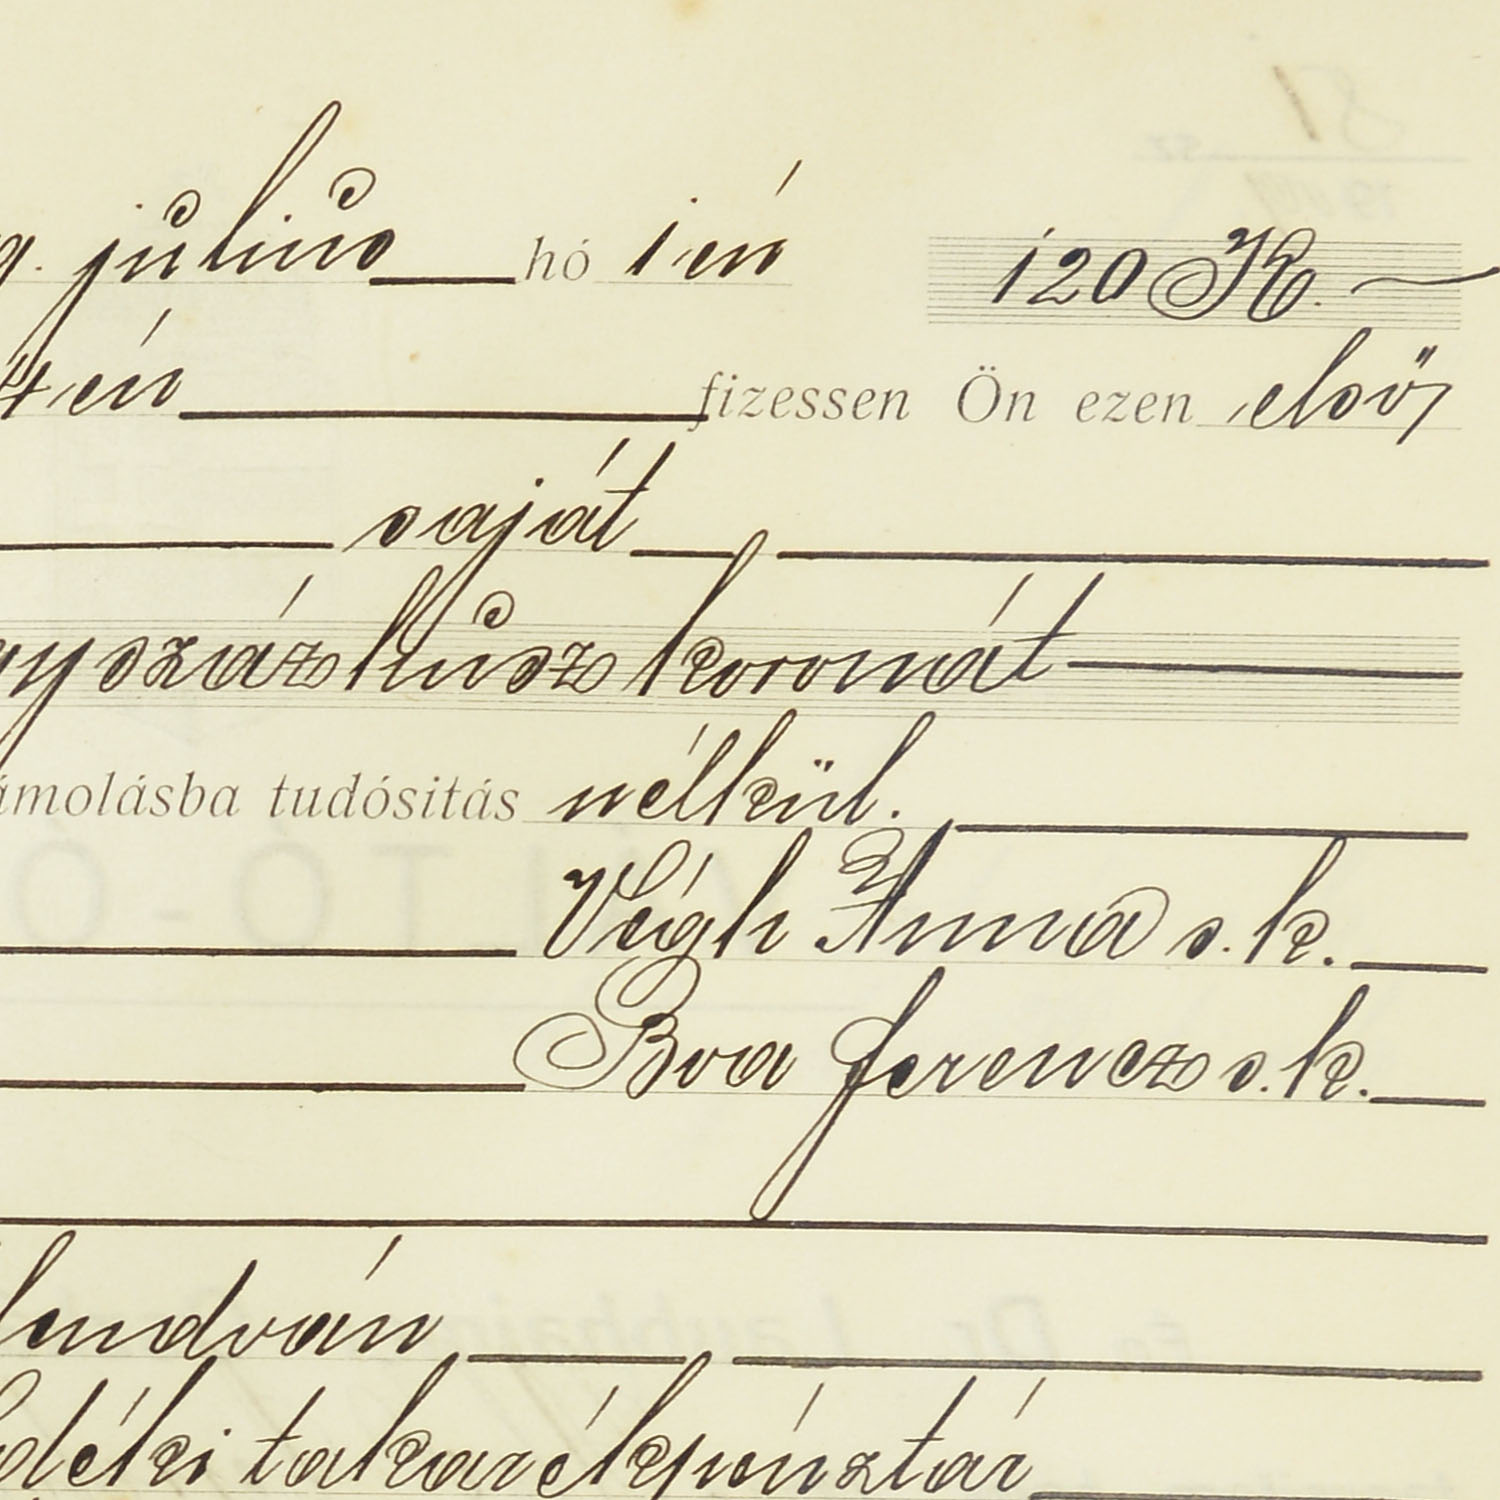 július hó 1én 120 K.
4 én fizessen Ön ezen első
saját
száz húsz koronát
ámolásba tudósitás nélkül.
Végh Anna s. k.
Bva Ferencz s. k.
lendván
déki takarékpénztár